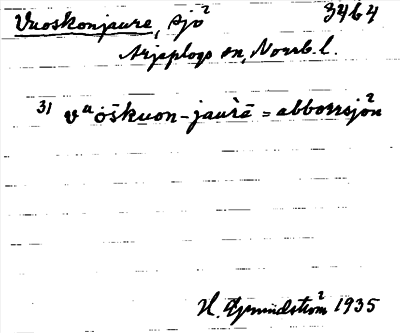 Vuoskonjaure, sjö² 3464
Arjeplogs sn, Norrb. l.
31 vᵘöškuon-jaùrē = abborrsjön²
H. Grundström² 1935